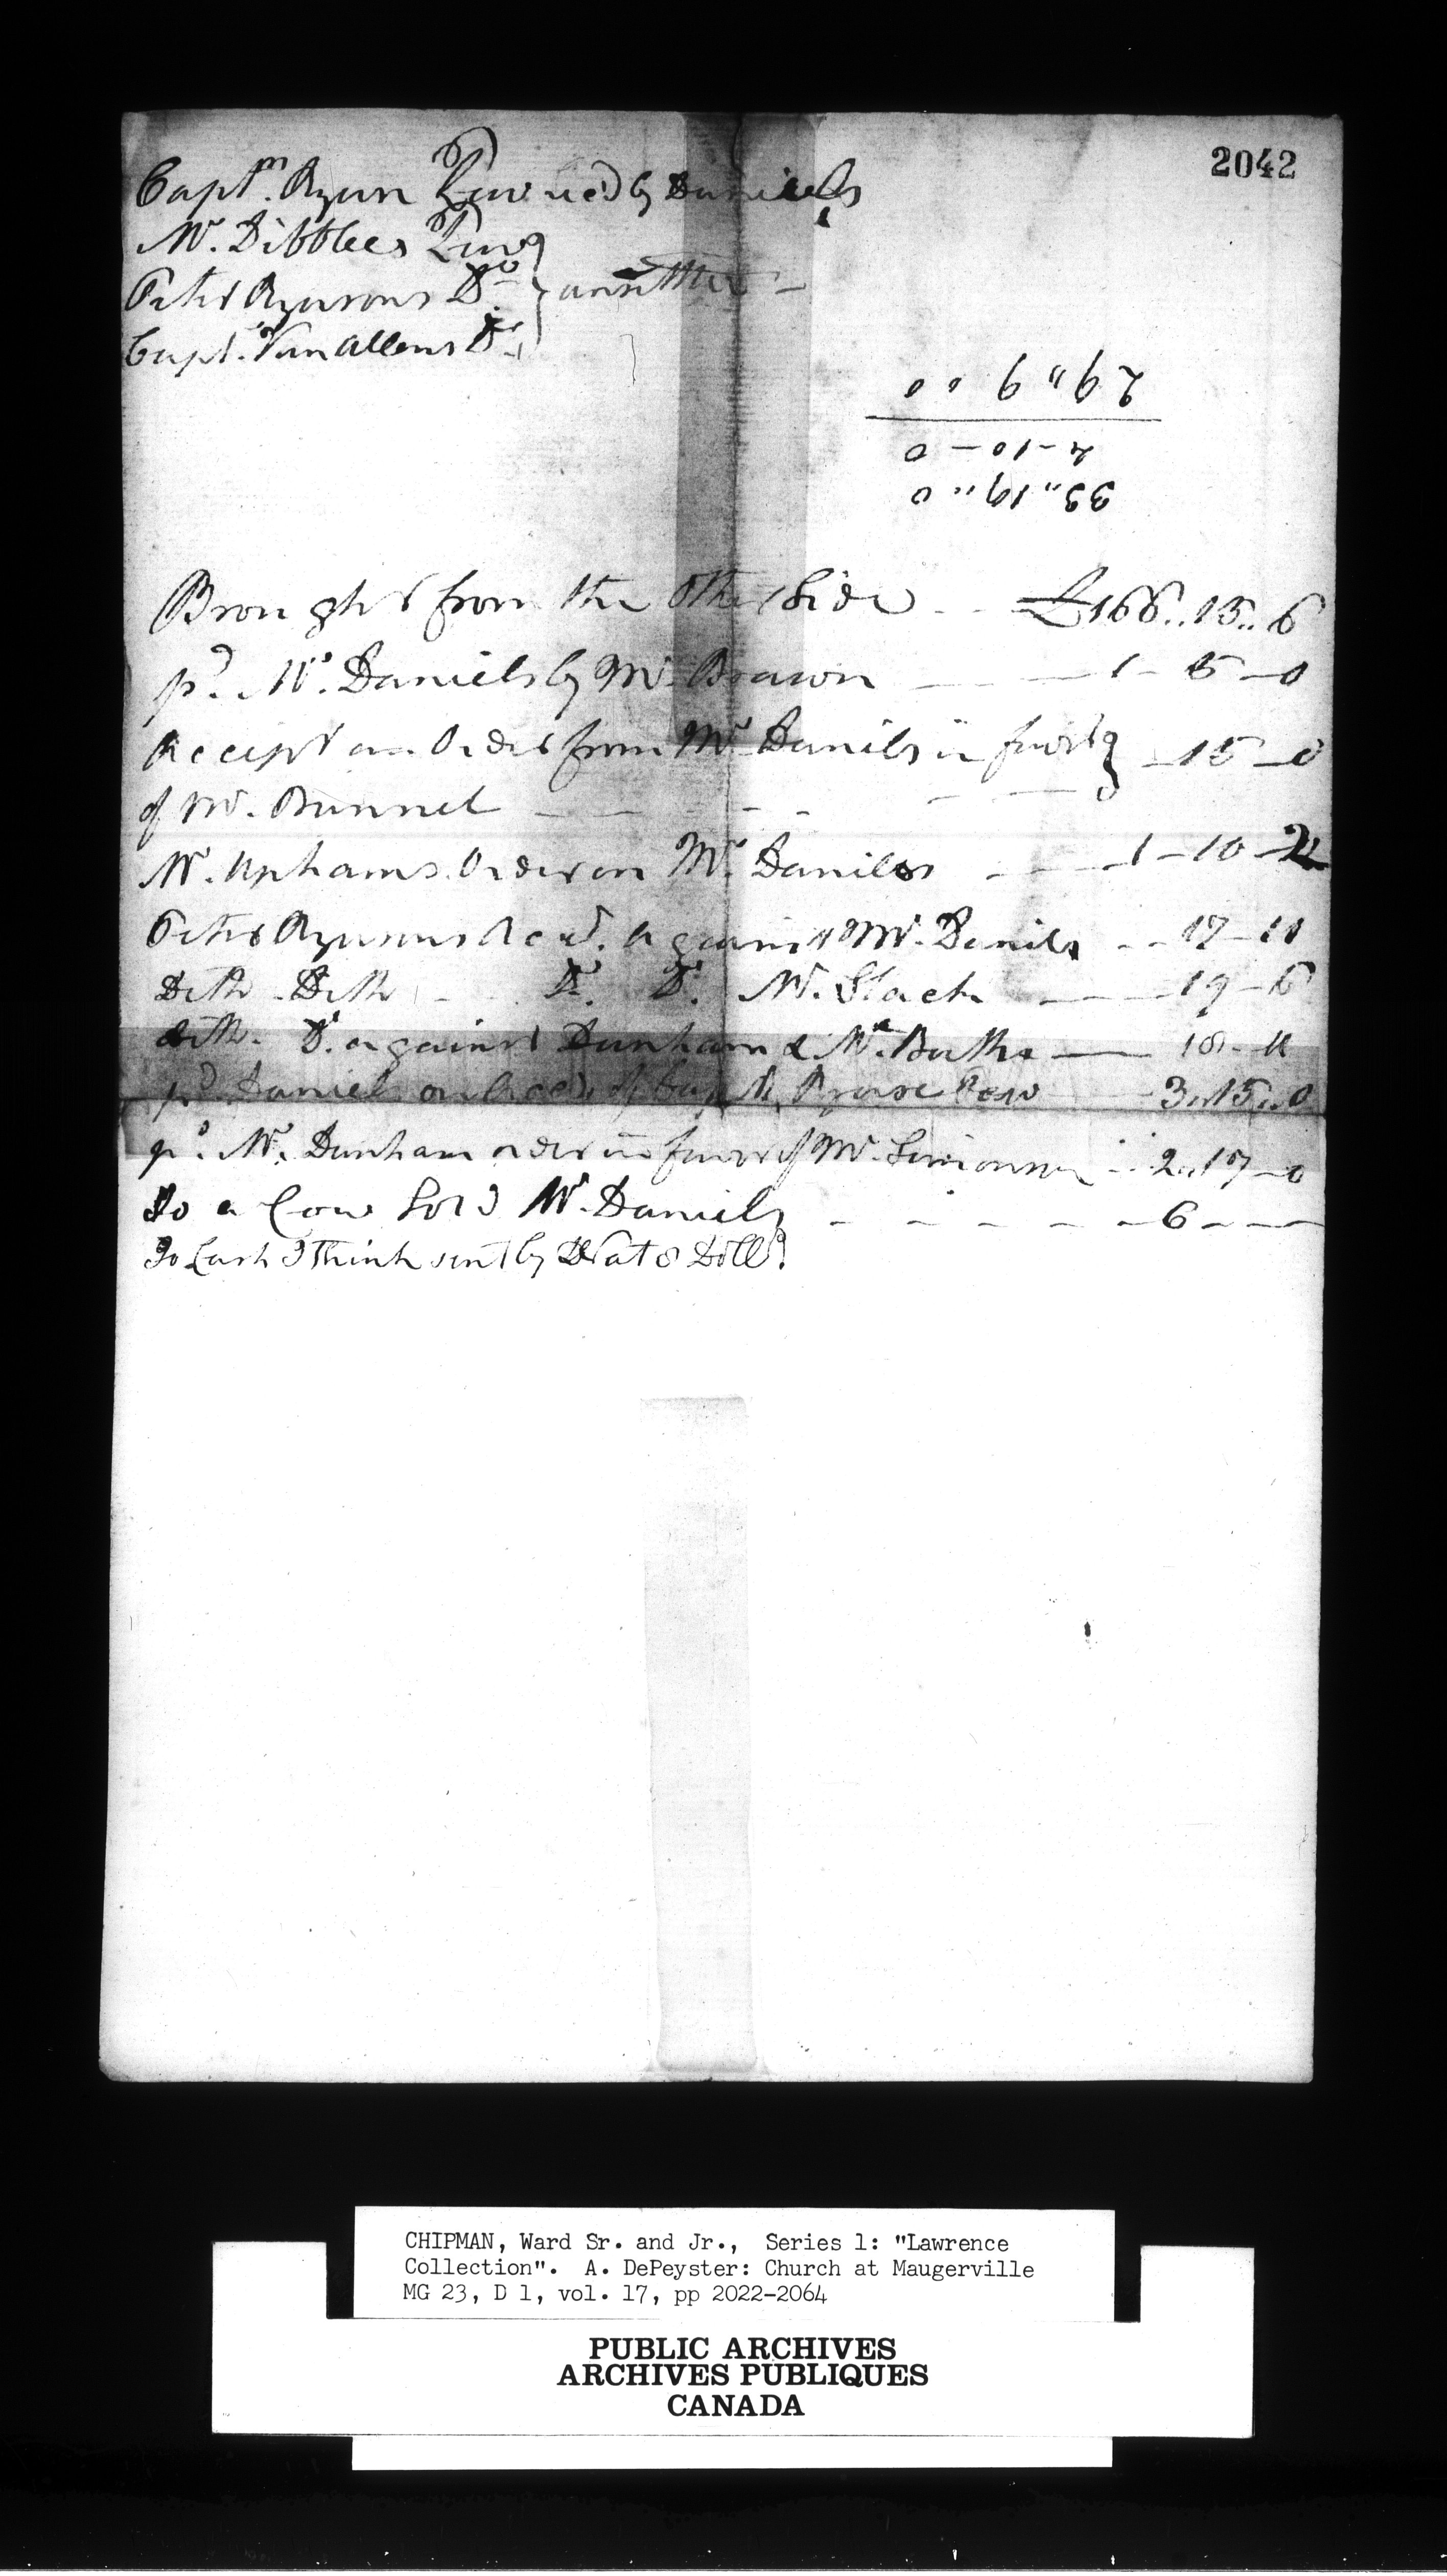 2042
Capt. Ryan Pew ned by Daniels
Mr. Dibblees Pew
Peter Ryersons Do
Capt. Vanallens Do
29,, 9 ,, 0
4-10-0
33,, 19,, 0
Brought from the Other Side - - £166..15..6
pd. Mr. Daniels by Mr. Brawn - 1-5-0
Accept an Order from Mr. Daniels in favor -15-0
of Mr. Bunnel
Mr. Uphams Order on Mr. Daniels - 1-10-
Peter Ryersons Acct. against Mr. Daniels - - 17-11
Ditto Ditto Do. Do. Mr. Slack - 19-6
ditto. Do. against Dunham & Mr. - 18-
pd Daniels on Acct. of Capt. Pew - 3..15..0
pd. Mr. Dunham order in favor of Mr. Simonson - 2..17-0
To a Cow Sold Mr. Daniels - - - - - -6-
To Cash I think sent by Nat 8 Dolls.
CHIPMAN, Ward Sr. and Jr., Series 1: "Lawrence
Collection". A. DePeyster: Church at Maugerville
MG 23, D 1, vol. 17, pp 2022-2064
PUBLIC ARCHIVES
ARCHIVES PUBLIQUES
CANADA